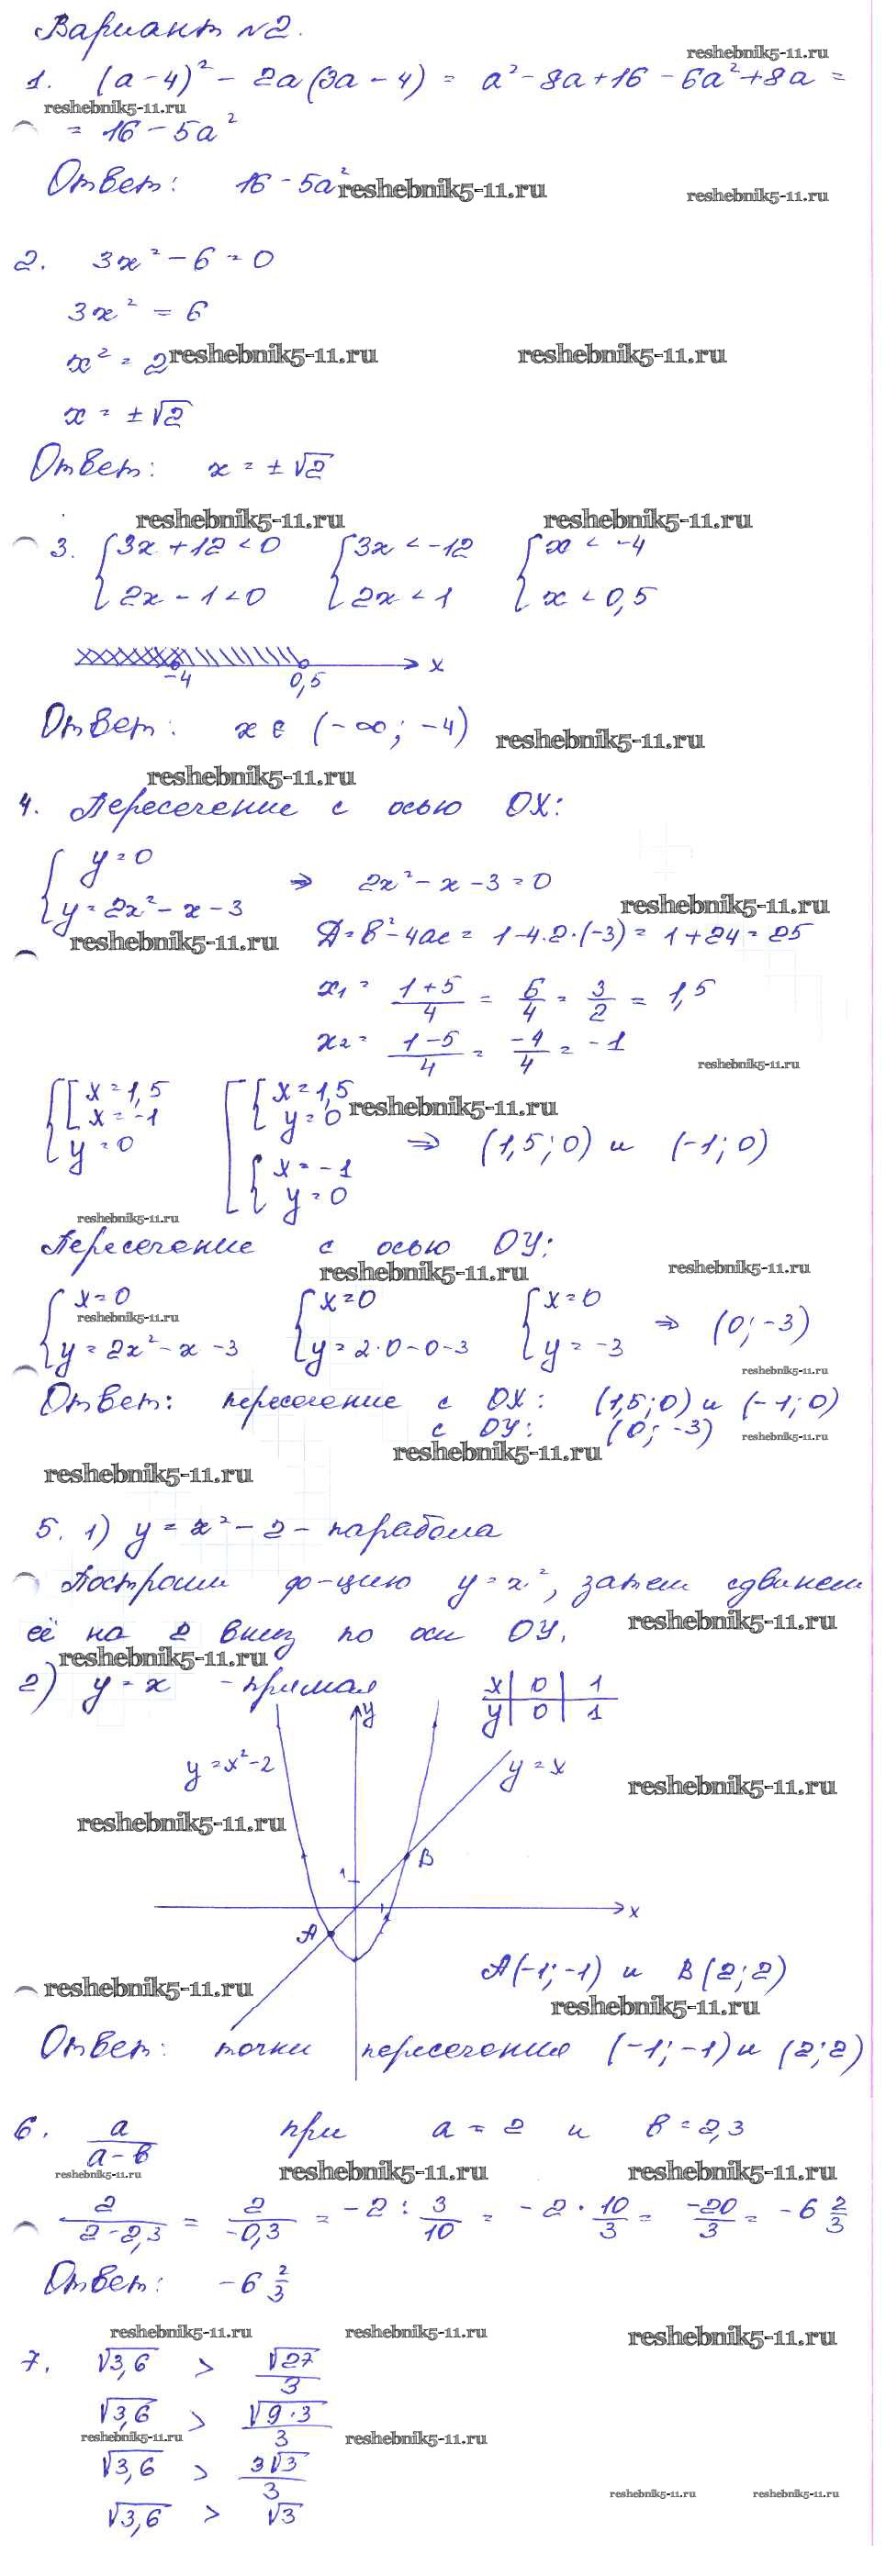 Вариант №2.
reshebnik5-11.ru
1. (a-4)² - 2a(3a-4) = a² - 8a + 16 - 6a² + 8a =
reshebnik5-11.ru
= 16 - 5a²
Ответ: 16 - 5a²
reshebnik5-11.ru reshebnik5-11.ru
2. 3x² - 6 = 0
3x² = 6
x² = 2
reshebnik5-11.ru reshebnik5-11.ru
x = ±√2
Ответ: x = ±√2
reshebnik5-11.ru reshebnik5-11.ru
3. {3x + 12 < 0 {3x < -12 {x < -4
{2x - 1 < 0 {2x < 1 {x < 0,5
-4 0,5 x
Ответ: x ∈ (-∞; -4)
reshebnik5-11.ru
reshebnik5-11.ru
4. Пересечение с осью OX:
{y = 0
{y = 2x² - x - 3 ⇒ 2x² - x - 3 = 0
reshebnik5-11.ru
reshebnik5-11.ru
Д = b² - 4ac = 1 - 4·2·(-3) = 1 + 24 = 25
x₁ = (1+5)/4 = 6/4 = 3/2 = 1,5
x₂ = (1-5)/4 = -4/4 = -1
reshebnik5-11.ru
{[x = 1,5 [{x = 1,5
reshebnik5-11.ru
[x = -1 {y = 0
{y = 0 ⇒ (1,5; 0) и (-1; 0)
{x = -1
{y = 0
reshebnik5-11.ru
Пересечение с осью OY:
reshebnik5-11.ru reshebnik5-11.ru
{x = 0 {x = 0 {x = 0
reshebnik5-11.ru
{y = 2x² - x - 3 {y = 2·0 - 0 - 3 {y = -3 ⇒ (0; -3)
reshebnik5-11.ru
Ответ: пересечение с OX: (1,5; 0) и (-1; 0)
с OY: (0; -3)
reshebnik5-11.ru
reshebnik5-11.ru
reshebnik5-11.ru
5. 1) y = x² - 2 - парабола
Построим ф-цию y = x², затем сдвинем
её на 2 вниз по оси OY.
reshebnik5-11.ru
reshebnik5-11.ru
2) y = x - прямая
x | 0 | 1
y | 0 | 1
y
y = x² - 2
y = x
reshebnik5-11.ru
reshebnik5-11.ru
B
1
x
A
A(-1; -1) и B(2; 2)
reshebnik5-11.ru
reshebnik5-11.ru
Ответ: точки пересечения (-1; -1) и (2; 2)
6. a/(a-b) при a = 2 и b = 2,3
reshebnik5-11.ru reshebnik5-11.ru reshebnik5-11.ru
2/(2-2,3) = 2/(-0,3) = -2 : 3/10 = -2 · 10/3 = -20/3 = -6 2/3
Ответ: -6 2/3
reshebnik5-11.ru reshebnik5-11.ru reshebnik5-11.ru
7. √3,6 > √27/3
√3,6 > √9·3/3
reshebnik5-11.ru reshebnik5-11.ru
√3,6 > 3√3/3
reshebnik5-11.ru reshebnik5-11.ru
√3,6 > √3